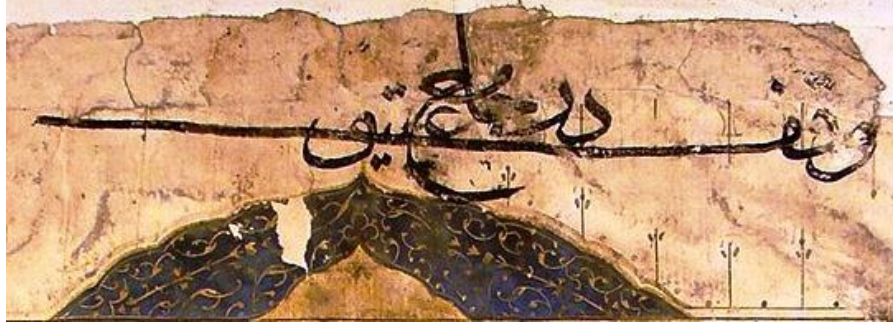 وقف جامع عتیق